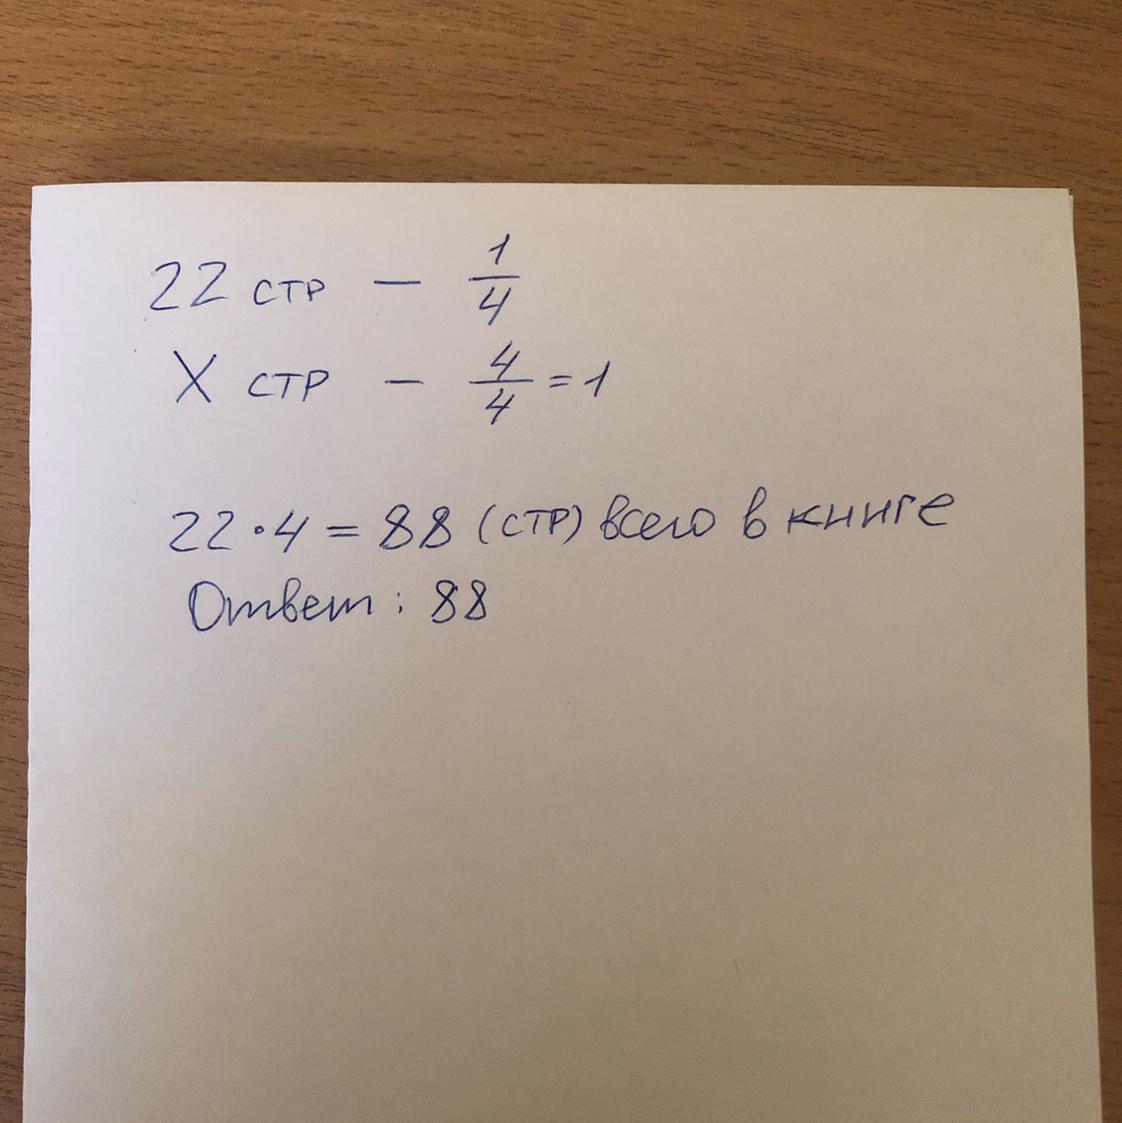 22 стр — 1/4
X стр — 4/4 = 1
22 · 4 = 88 (стр) всего в книге
Ответ: 88